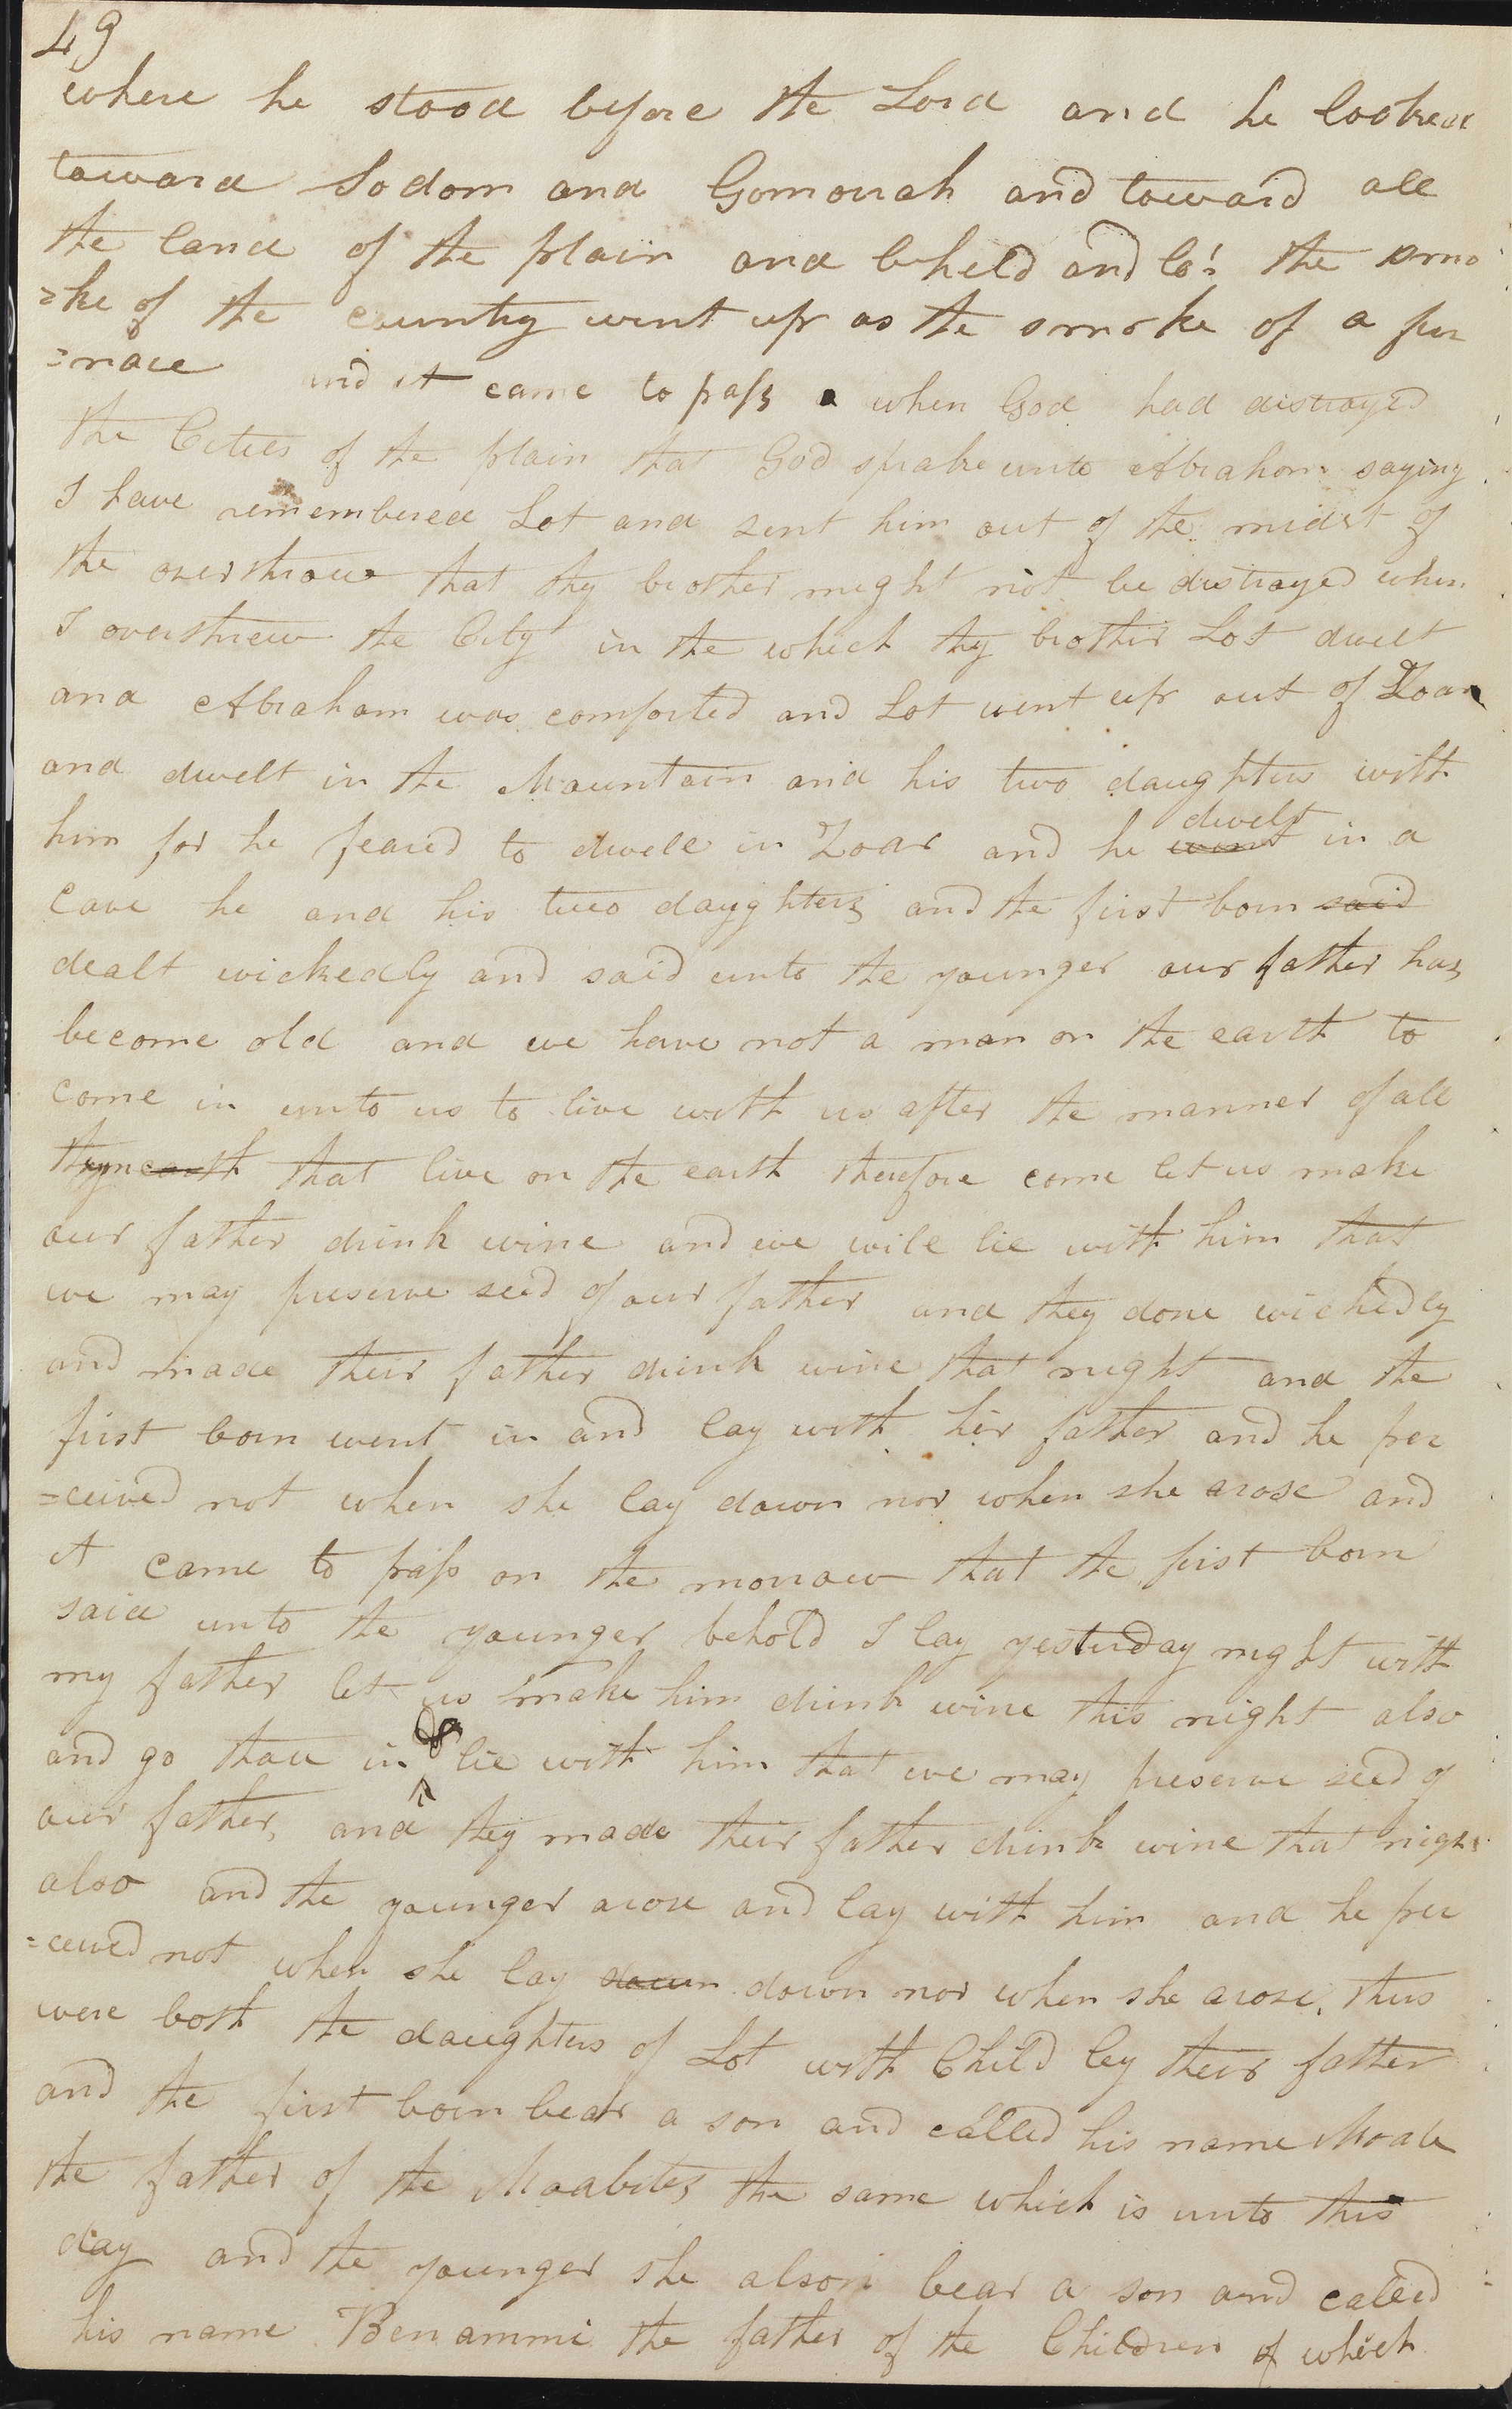 49
where he stood before the Lord and he looked
toward Sodom and Gomorrah and toward all
the land of the plain and beheld and lo! the smo
=ke of the country went up as the smoke of a fur
=nace and it came to pass when God had distroyed
the Cities of the plain that God spake unto Abraham saying
I have remembered Lot and sent him out of the midst of
the overthrow that thy brother might not be distroyed when
I overthrew the City in the which thy brother Lot dwelt
and Abraham was comforted and Lot went up out of Zoar
and dwelt in the Mountain and his two daughters with
him for he feared to dwell in Zoar and he went dwelt in a
cave he and his two daughters and the first born said
dealt wickedly and said unto the younger our father has
become old and we have not a man on the earth to
come in unto us to live with us after the manner of all
that live on the earth therefore come let us make
our father drink wine and we will lie with him that
we may preserve seed of our father and they done wickedly
and made their father drink wine that night and the
first born went in and lay with her father and he per
=ceived not when she lay down nor when she arose and
it came to pass on the morrow that the first born
said unto the younger behold I lay yesterday night with
my father let us make him drink wine this night also
and go thou in & lie with him that we may preserve seed of
our father, and they made their father drink wine that night
also and the younger arose and lay with him and he per
=ceived not when she lay down down nor when she arose, thus
were both the daughters of Lot with Child by their father
and the first born bear a son and called his name Moab
the father of the Moabites the same which is unto this
day and the younger she also bear a son and called
his name Benammi the father of the Children of which